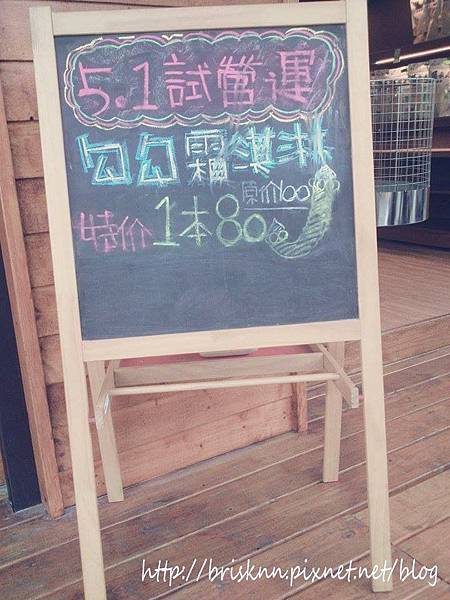 5.1試營運
勾勾霜淇淋
原价100
特价1本80
http://brisknn.pixnet.net/blog